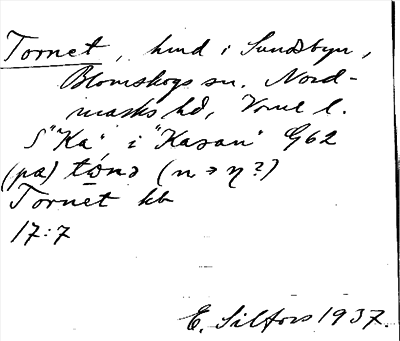 Tornet, hmd i Sundsbyn,
Blomskogs sn. Nord-
marks hd, Vrml l.
S "Ka" i "Kasan" G62
(pa) tɷ́nə (n → ŋ?)
Tornet kb
17:7
E. Silfors 1937.